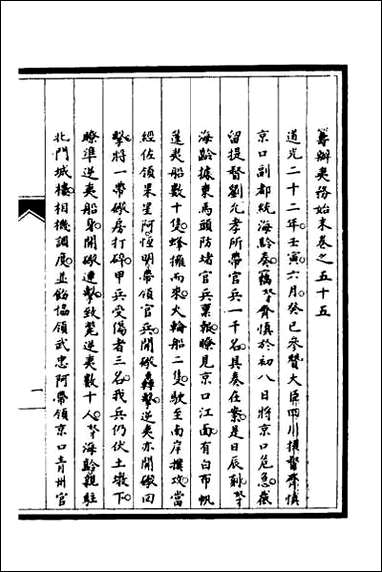 籌辦夷務始末卷之五十五
道光二十二年壬寅六月癸巳參贊大臣四川提督齊慎
京口副都統海齡奏竊齊慎於初八日將京口危急截
留提督劉允孝所帶官兵一千名具奏在案是日辰刻
海齡據東馬頭防堵官兵稟報瞭見京口江面有白布帆
篷夷船數十隻蜂擁而來火輪船二隻駛至南岸撲攻當
經佐領果星阿恆明帶領官兵開礮轟擊逆夷亦開礮回
擊將一帶礮房打碎甲兵受傷者三名我兵仍伏土墩下
瞭準逆夷船身開礮連擊致斃逆夷數十人海齡親駐
北門城樓相機調度並飭協領武忠阿帶領京口青州官
一